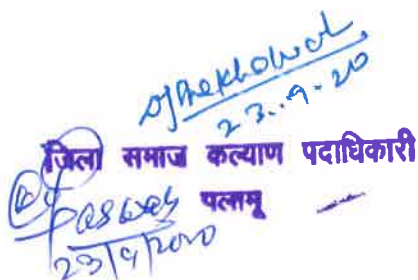 23.9.20
जिला समाज कल्याण पदाधिकारी
पलामू
23/9/2020